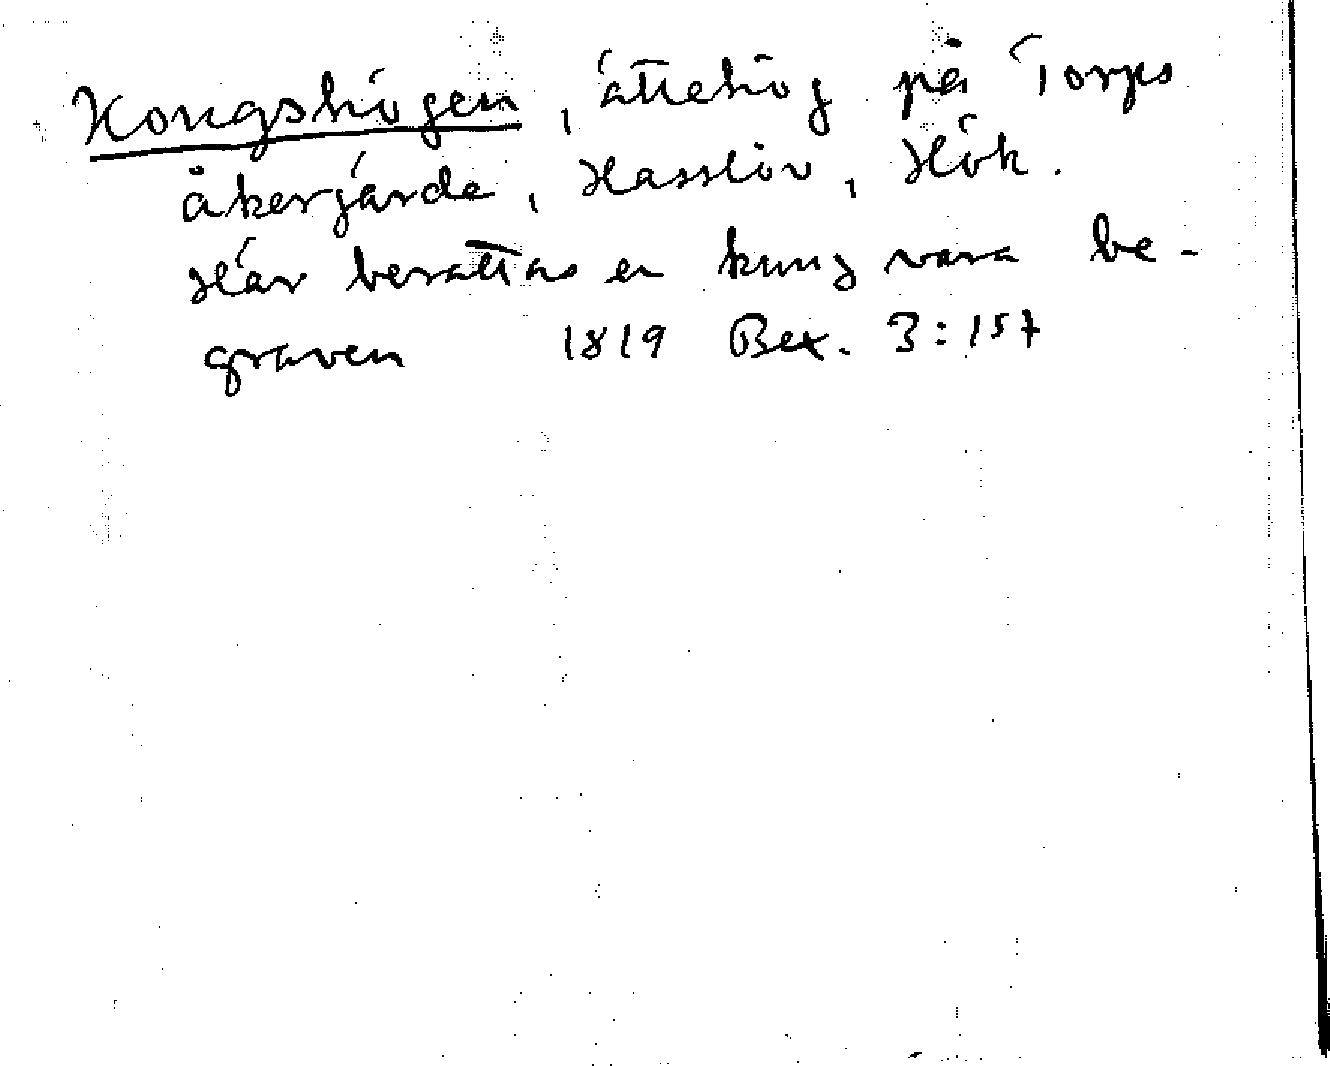 Kongshögen, ättehög på Torps
åkergärde, Hasslöv, Hök.
Här berättas en kung vara be-
graven 1819 Bex. 3:157